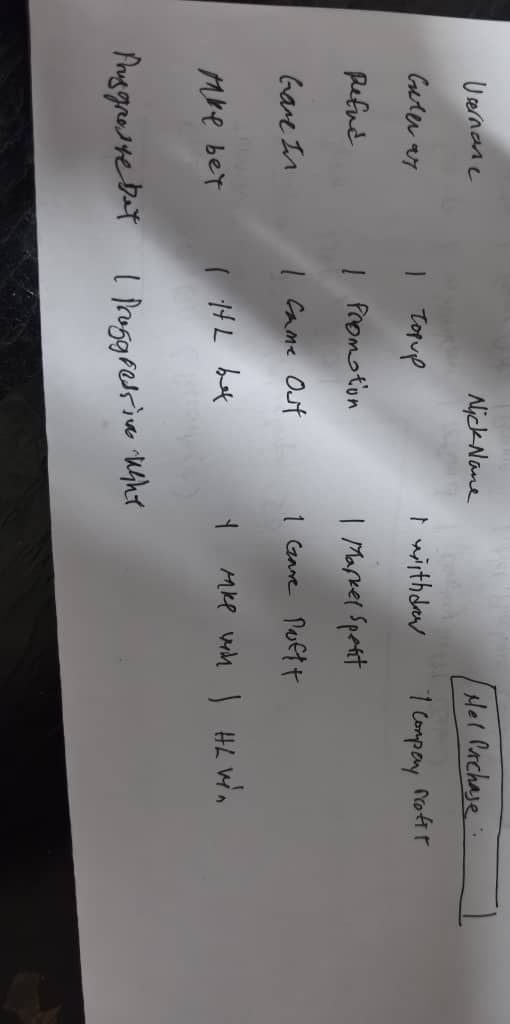 Username NickName Mel Purchase :
Gateway | Topup | withdraw | Company Profit
Refund | Promotion | Market Spent
Game In | Game Out | Game Profit
MKE bet | HL bet | MKE win | HL win
Proggressive bet | Proggressive